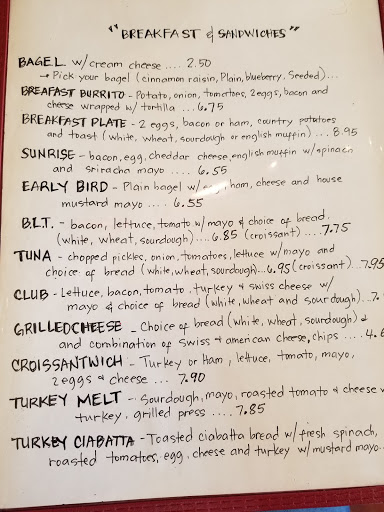 "BREAKFAST & SANDWICHES"
BAGEL w/cream cheese .... 2.50
→ Pick your bagel (cinnamon raisin, Plain, blueberry, Seeded)...
BREAFAST BURRITO - Potato, onion, tomatoes, 2eggs, bacon and
cheese wrapped w/ tortilla ... 6.75
BREAKFAST PLATE - 2 eggs, bacon or ham, country potatoes
and toast (white, wheat, sourdough or english muffin) ... 8.95
SUNRISE - bacon, egg, cheddar cheese, english muffin w/spinach
and sriracha mayo .... 6.55
EARLY BIRD - Plain bagel w/ egg, ham, cheese and house
mustard mayo .... 6.55
B.L.T. - bacon, lettuce, tomato w/ mayo & choice of bread.
(white, wheat, sourdough)... 6.85 (croissant) .... 7.75
TUNA - chopped pickles, onion, tomatoes, lettuce w/ mayo and
choice of bread (white, wheat, sourdough)... 6.95 (croissant)... 7.95
CLUB - Lettuce, bacon, tomato, turkey & swiss cheese w/
mayo & choice of bread (white, wheat and sourdough)..7.
GRILLEDCHEESE - Choice of bread (white, wheat, sourdough) &
and combination of swiss & american cheese, chips .... 4.6
CROISSANTWICH - Turkey or Ham, lettuce, tomato, mayo,
2eggs & cheese ... 7.90
TURKEY MELT - Sourdough, mayo, roasted tomato & cheese w/
turkey, grilled press .... 7.85
TURKEY CIABATTA - Toasted ciabatta bread w/ fresh spinach,
roasted tomatoes, egg, cheese and turkey w/ mustard mayo..